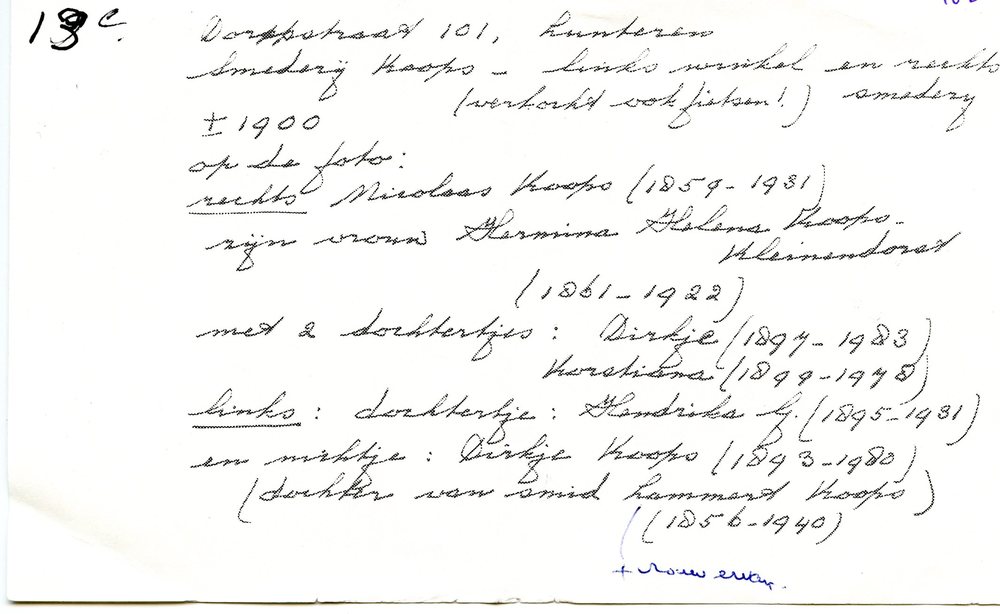 13c.
Dorpstraat 101, Lunteren
Smederij Koops - links winkel en rechts
(verkocht ook fietsen!) smederij
± 1900
op de foto:
rechts Nicolaas Koops (1859-1931)
zijn vrouw Hermina Helena Koops-
Kleinendorst
(1861-1922)
met 2 dochtertjes: Dirkje (1897-1983)
Korstiana (1899-1978)
links: dochtertje: Hendrika G. (1895-1931)
en nichtje: Dirkje Koops (1893-1980)
(dochter van smid Lammert Koops)
(1856-1940)